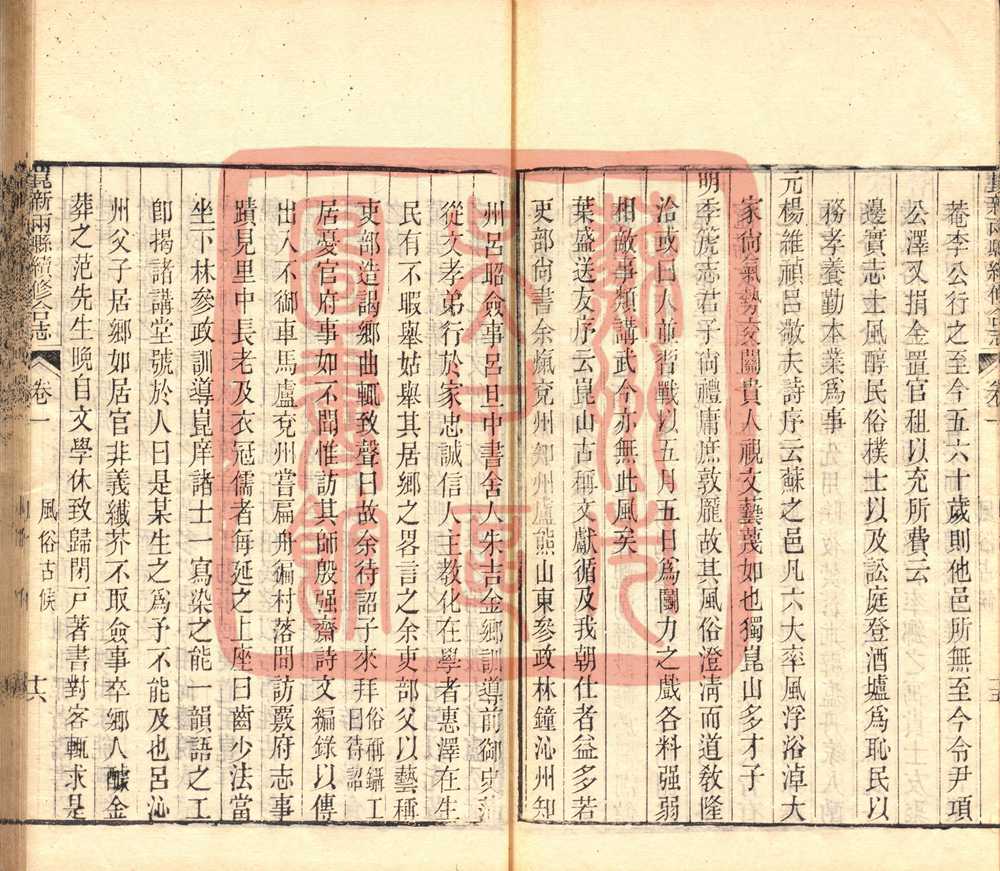 菴李公行之至今五六十歲則他邑所無至今令尹項
公澤又捐金置官租以充所費云
邊實志土風醇民俗樸士以及訟庭登酒壚爲恥民以
務孝養勤本業爲事
元楊維禎呂敬夫詩序云蘇之邑凡六大率風浮俗淖大
家尙氣勢交關貴人視文藝蔑如也獨崑山多才子
明季箎志君子尙禮庸庶敦龐故其風俗澄淸而道敎隆
洽或曰人並習戰以五月五日爲鬭力之戲各料强弱
相敵事類講武今亦無此風矣
葉盛送友序云崑山古稱文獻循及我朝仕者益多若
吏部尙書余熂兗州知州盧熊山東參政林鐘沁州知
州呂昭僉事呂旦中書舍人朱吉金鄉訓導前御史范
從文孝弟行於家忠誠信人主教化在學者惠澤在生
民有不暇舉姑舉其居鄉之畧言之余吏部父以藝稱
吏部造謁鄉曲輒致聲曰故余待詔子來拜俗稱鑷工曰待詔
居憂官府事如不聞惟訪其師殷强齋詩文編錄以傳
出入不御車馬盧兗州嘗扁舟徧村落間訪覈府志事
蹟見里中長老及衣冠儒者每延之上座曰齒少法當
坐下林參政訓導崑庠諸士一寫染之能一韻語之工
卽揭諸講堂號於人曰是某生之爲予不能及也呂沁
州父子居鄉如居官非義纖芥不取僉事卒鄉人醵金
葬之范先生晚自文學休致歸閉戸著書對客輒求是
崑新兩縣續修合志
卷一
風俗 古候
十六